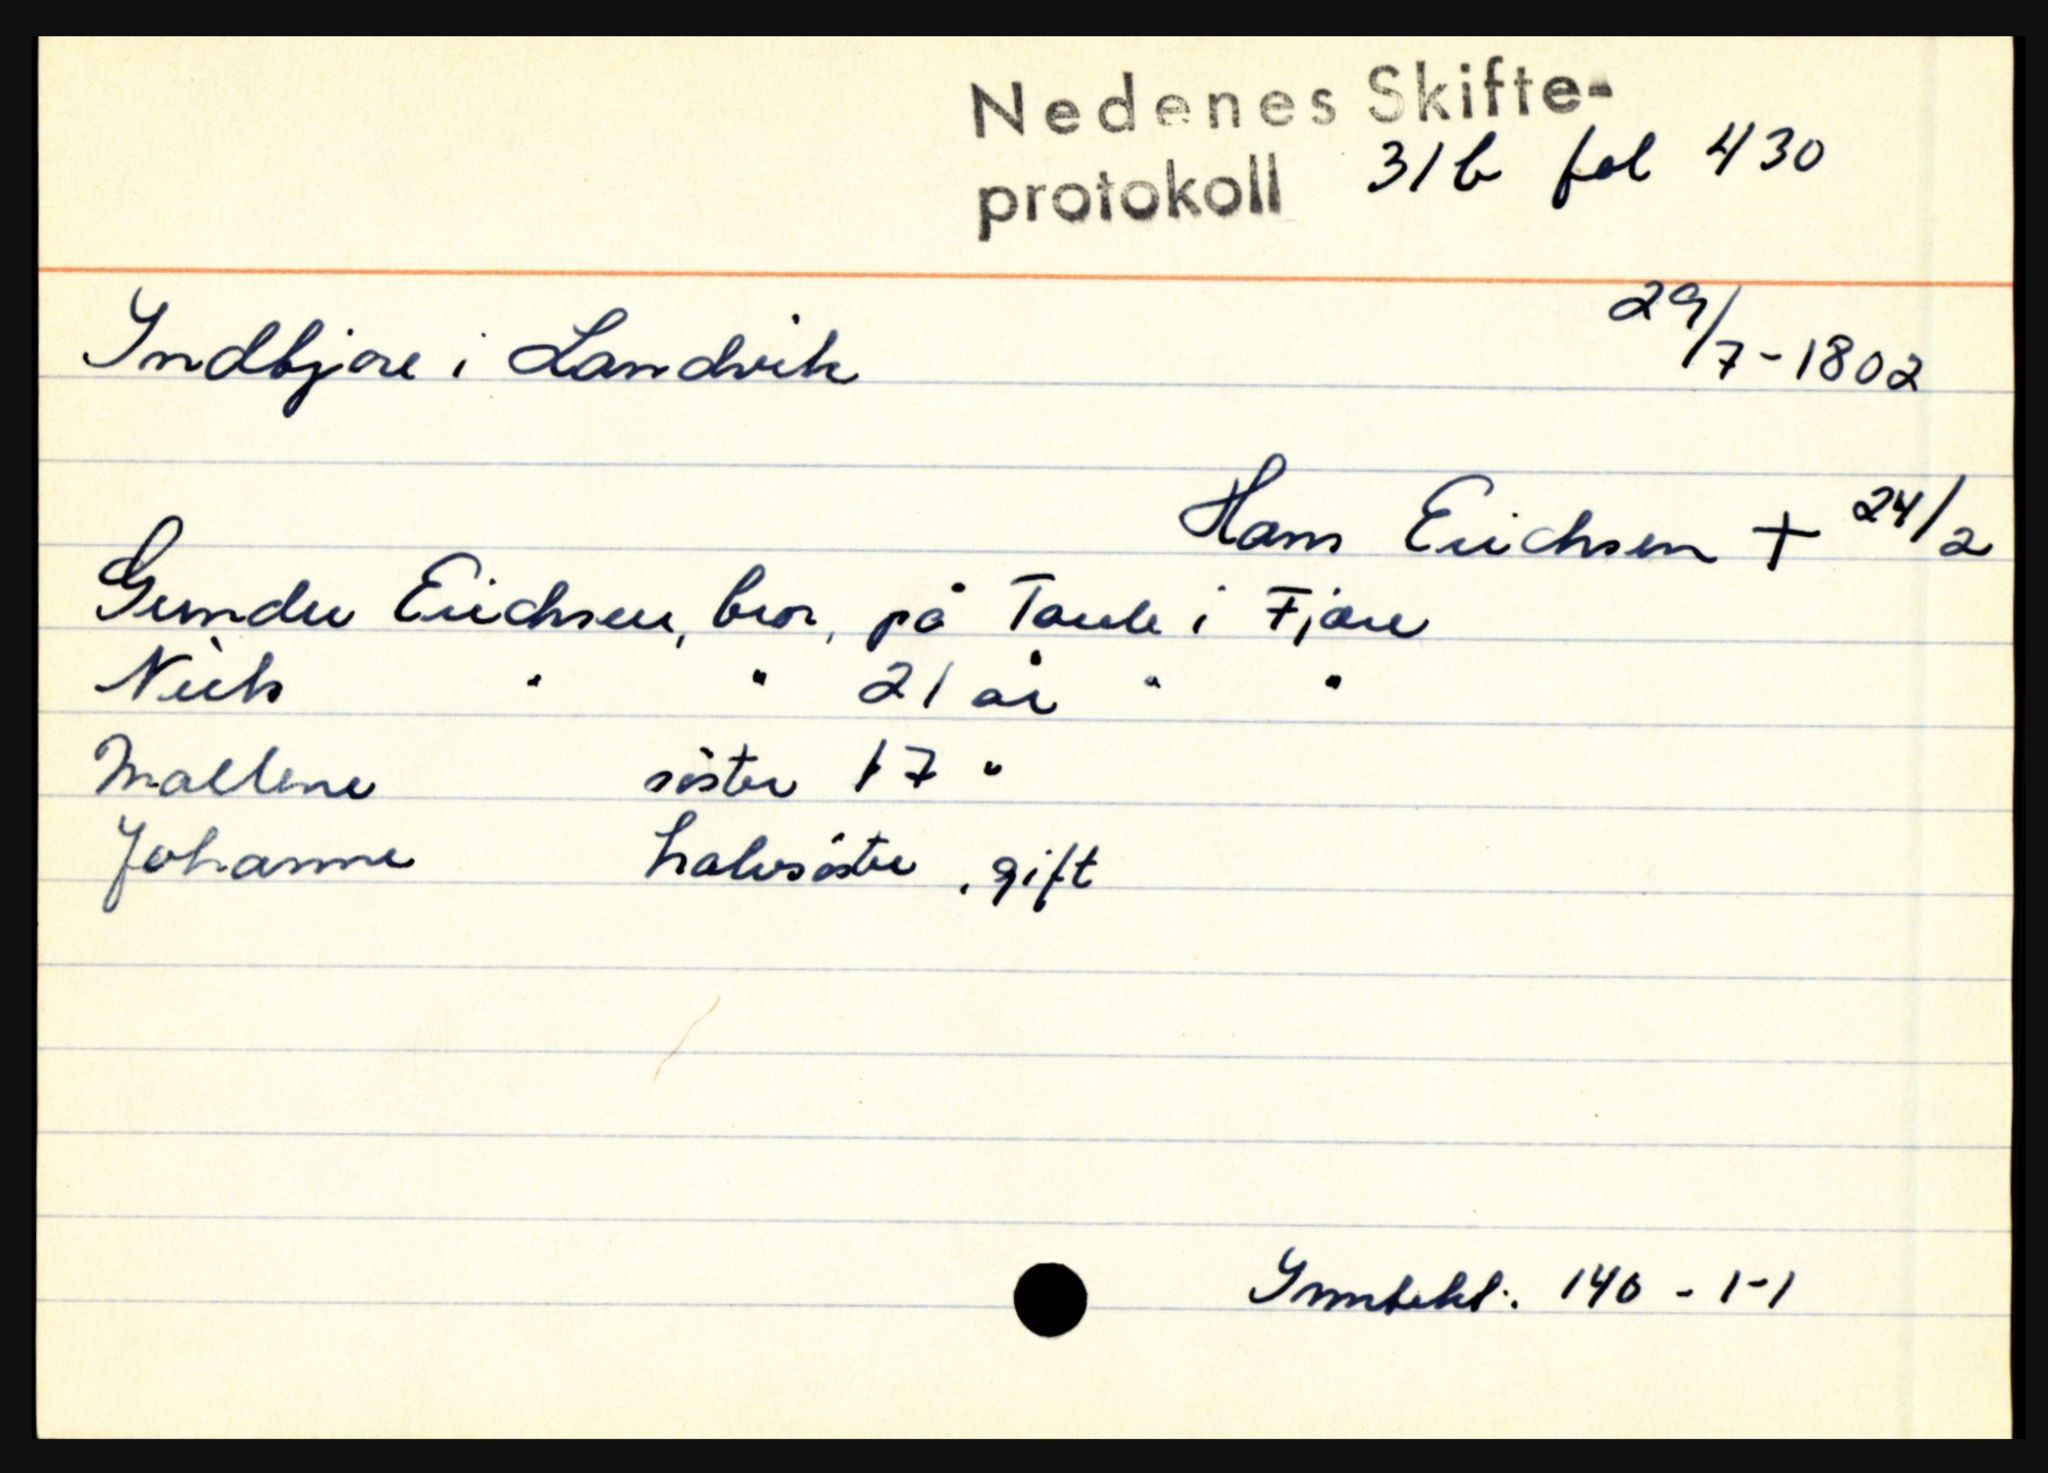 Nedenes Skifte-
protokoll 31b fol 430
29/7-1802
Indbjore i Landvik
Hans Erichsen + 24/2
Gunder Erichsen, bror, på Taule i Fjære
Niels " " 21 år " "
Mallene söster 17 "
Johanne halvsöster, gift
Inntekt. 140 - 1-1